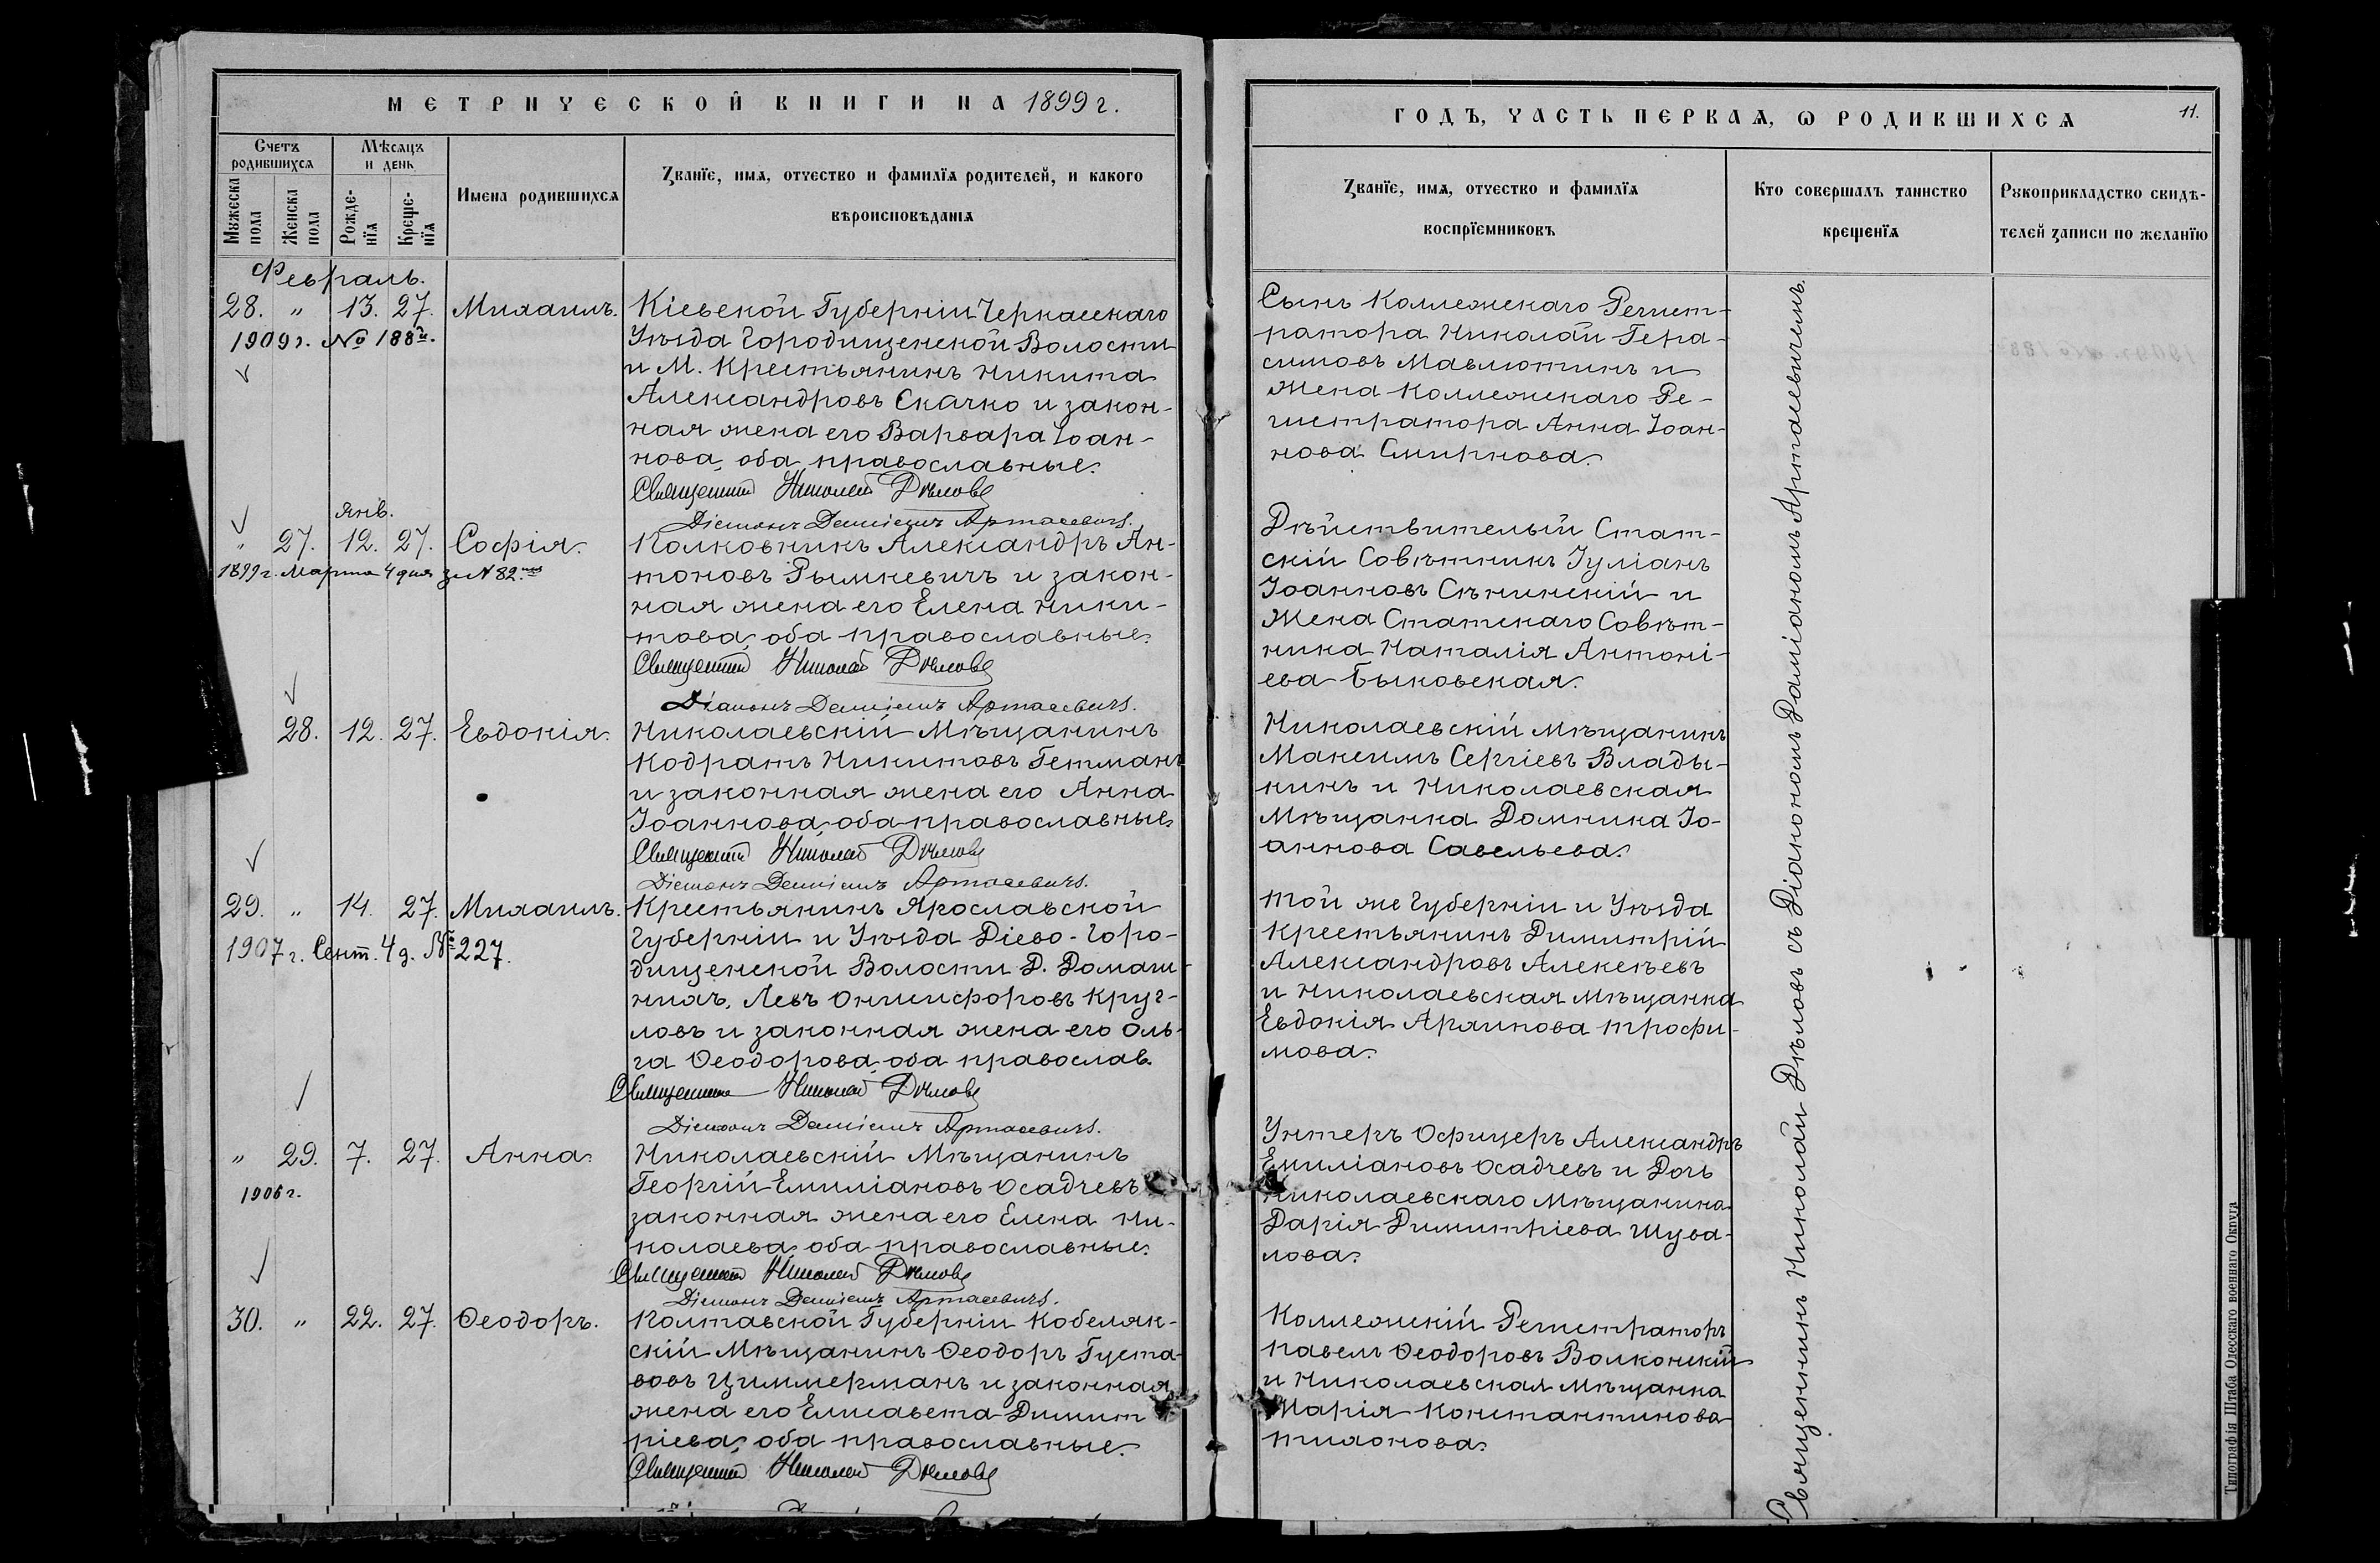 МЕТРИЧЕСКОЙ КНИГИ НА 1899 г.
Счетъ родившихся
Мѣсяцъ и день
Мужеска пола
Женска пола
Рожденїя
Крещенїя
Имена родившихся
Званїе, имя, отчество и фамилїя родителей, и какого
вѣроисповѣданїя
Февраль.
28. " 13. 27. Михаилъ.
1909 г. № 188й.
Кіевской Губерніи Черкасскаго
Уѣзда Городищенской Волости
и М. Крестьянинъ Никита
Александровъ Скачко и закон-
ная жена его Варвара Іоан-
нова, оба православные.
Священникъ Николай Дѣловъ
Діаконъ Даміанъ Артасевичъ.
янв.
" 27. 12. 27. Софія.
1899 г. Марта 4 дня за № 82.
Полковникъ Александръ Ан-
тоновъ Рымкевичъ и закон-
ная жена его Елена Ники-
това, оба православные.
Священникъ Николай Дѣловъ
Діаконъ Даміанъ Артасевичъ.
28. 12. 27. Евдокія.
Николаевскій Мѣщанинъ
Кодратъ Никитовъ Гетманъ
и законная жена его Анна
Іоаннова, оба православные
Священникъ Николай Дѣловъ
Діаконъ Даміанъ Артасевичъ.
29. " 14. 27. Михаилъ.
1907 г. Сент. 4 д. № 227.
Крестьянинъ Ярославской
Губерніи и Уѣзда Діево-Горо-
дищенской Волости Д. Домаш-
нихъ, Левъ Онисифоровъ Круг-
ловъ и законная жена его Оль-
га Ѳеодорова, оба православ.
Священникъ Николай Дѣловъ
Діаконъ Даміанъ Артасевичъ.
" 29. 7. 27. Анна.
1906 г.
Николаевскій Мѣщанинъ
Георгій Емиліановъ Осадчевъ
законная жена его Елена Ни-
колаева, оба православные.
Священникъ Николай Дѣловъ
Діаконъ Даміанъ Артасевичъ.
30. " 22. 27. Ѳеодоръ.
Полтавской Губерніи Кобеляк-
скій Мѣщанинъ Ѳеодоръ Густа-
вовъ Циммерманъ и законная
жена его Елисавета Димит
ріева, оба православные.
Священникъ Николай Дѣловъ
ГОДЪ, ЧАСТЬ ПЕРВАЯ, Ѡ РОДИВШИХСЯ
11.
Званїе, имя, отчество и фамилїя
воспрїемниковъ
Кто совершалъ таинство
крещенїя
Рукоприкладство свидѣ-
телей записи по желанїю
Сынъ Коллежскаго Регист-
ратора Николай Гера-
симовъ Мавлютинъ и
Жена Коллежскаго Ре-
гистратора Анна Іоан-
нова Смирнова.
Дѣйствителый Стат-
скій Совѣтникъ Іуліанъ
Іоанновъ Сѣнинскій и
Жена Статскаго Совѣт-
ника Наталія Антоні-
ева Быковская.
Николаевскій Мѣщанинъ
Максимъ Сергіевъ Влады-
кинъ и Николаевская
Мѣщанка Домника Іо-
аннова Савельева.
Той же Губерніи и Уѣзда
Крестьянинъ Димитрій
Александровъ Алексѣевъ
и Николаевская Мѣщанка
Евдокія Архипова Трофи-
мова.
Унтеръ Офицеръ Александръ
Емиліановъ Осадчевъ и Дочь
Николаевскаго Мѣщанина
Дарія Димитріева Шува-
лова.
Коллежскій Регистраторъ
Павелъ Ѳеодоровъ Волконскій
и Николаевская Мѣщанка
Марія Константинова
Тихонова.
Священникъ Николай Дѣловъ съ Діакономъ Даміаномъ Артасевичемъ.
Типографія Штаба Одесскаго военнаго Округа